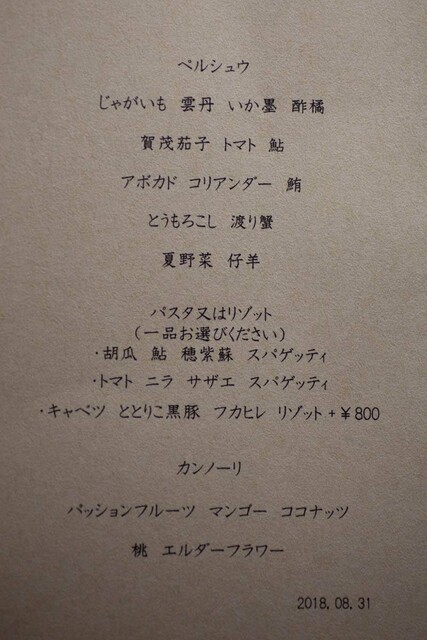 ペルシュウ
じゃがいも 雲丹 いか墨 酢橘
賀茂茄子 トマト 鮎
アボカド コリアンダー 鮪
とうもろこし 渡り蟹
夏野菜 仔羊
パスタ又はリゾット
(一品お選びください)
・胡瓜 鮎 穂紫蘇 スパゲッティ
・トマト ニラ サザエ スパゲッティ
・キャベツ ととりこ黒豚 フカヒレ リゾット +¥800
カンノーリ
パッションフルーツ マンゴー ココナッツ
桃 エルダーフラワー
2018.08.31